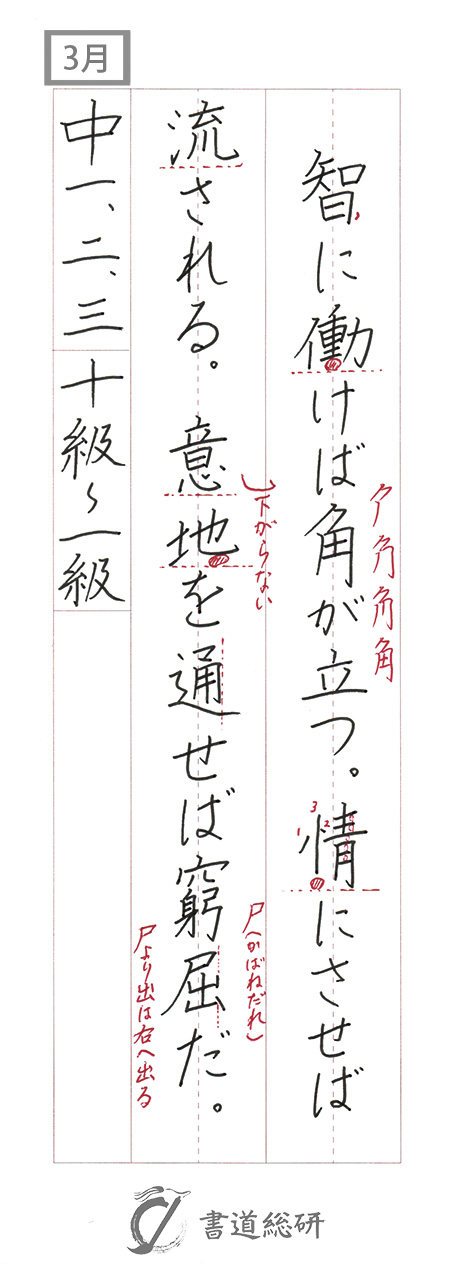 3月
智に働けば角が立つ。情にさせば
流される。意地を通せば窮屈だ。
中一、二、三 十級〜一級
角
下がらない
3
1
2
尸(かばねだれ)
尸より出は右へ出る
書道総研